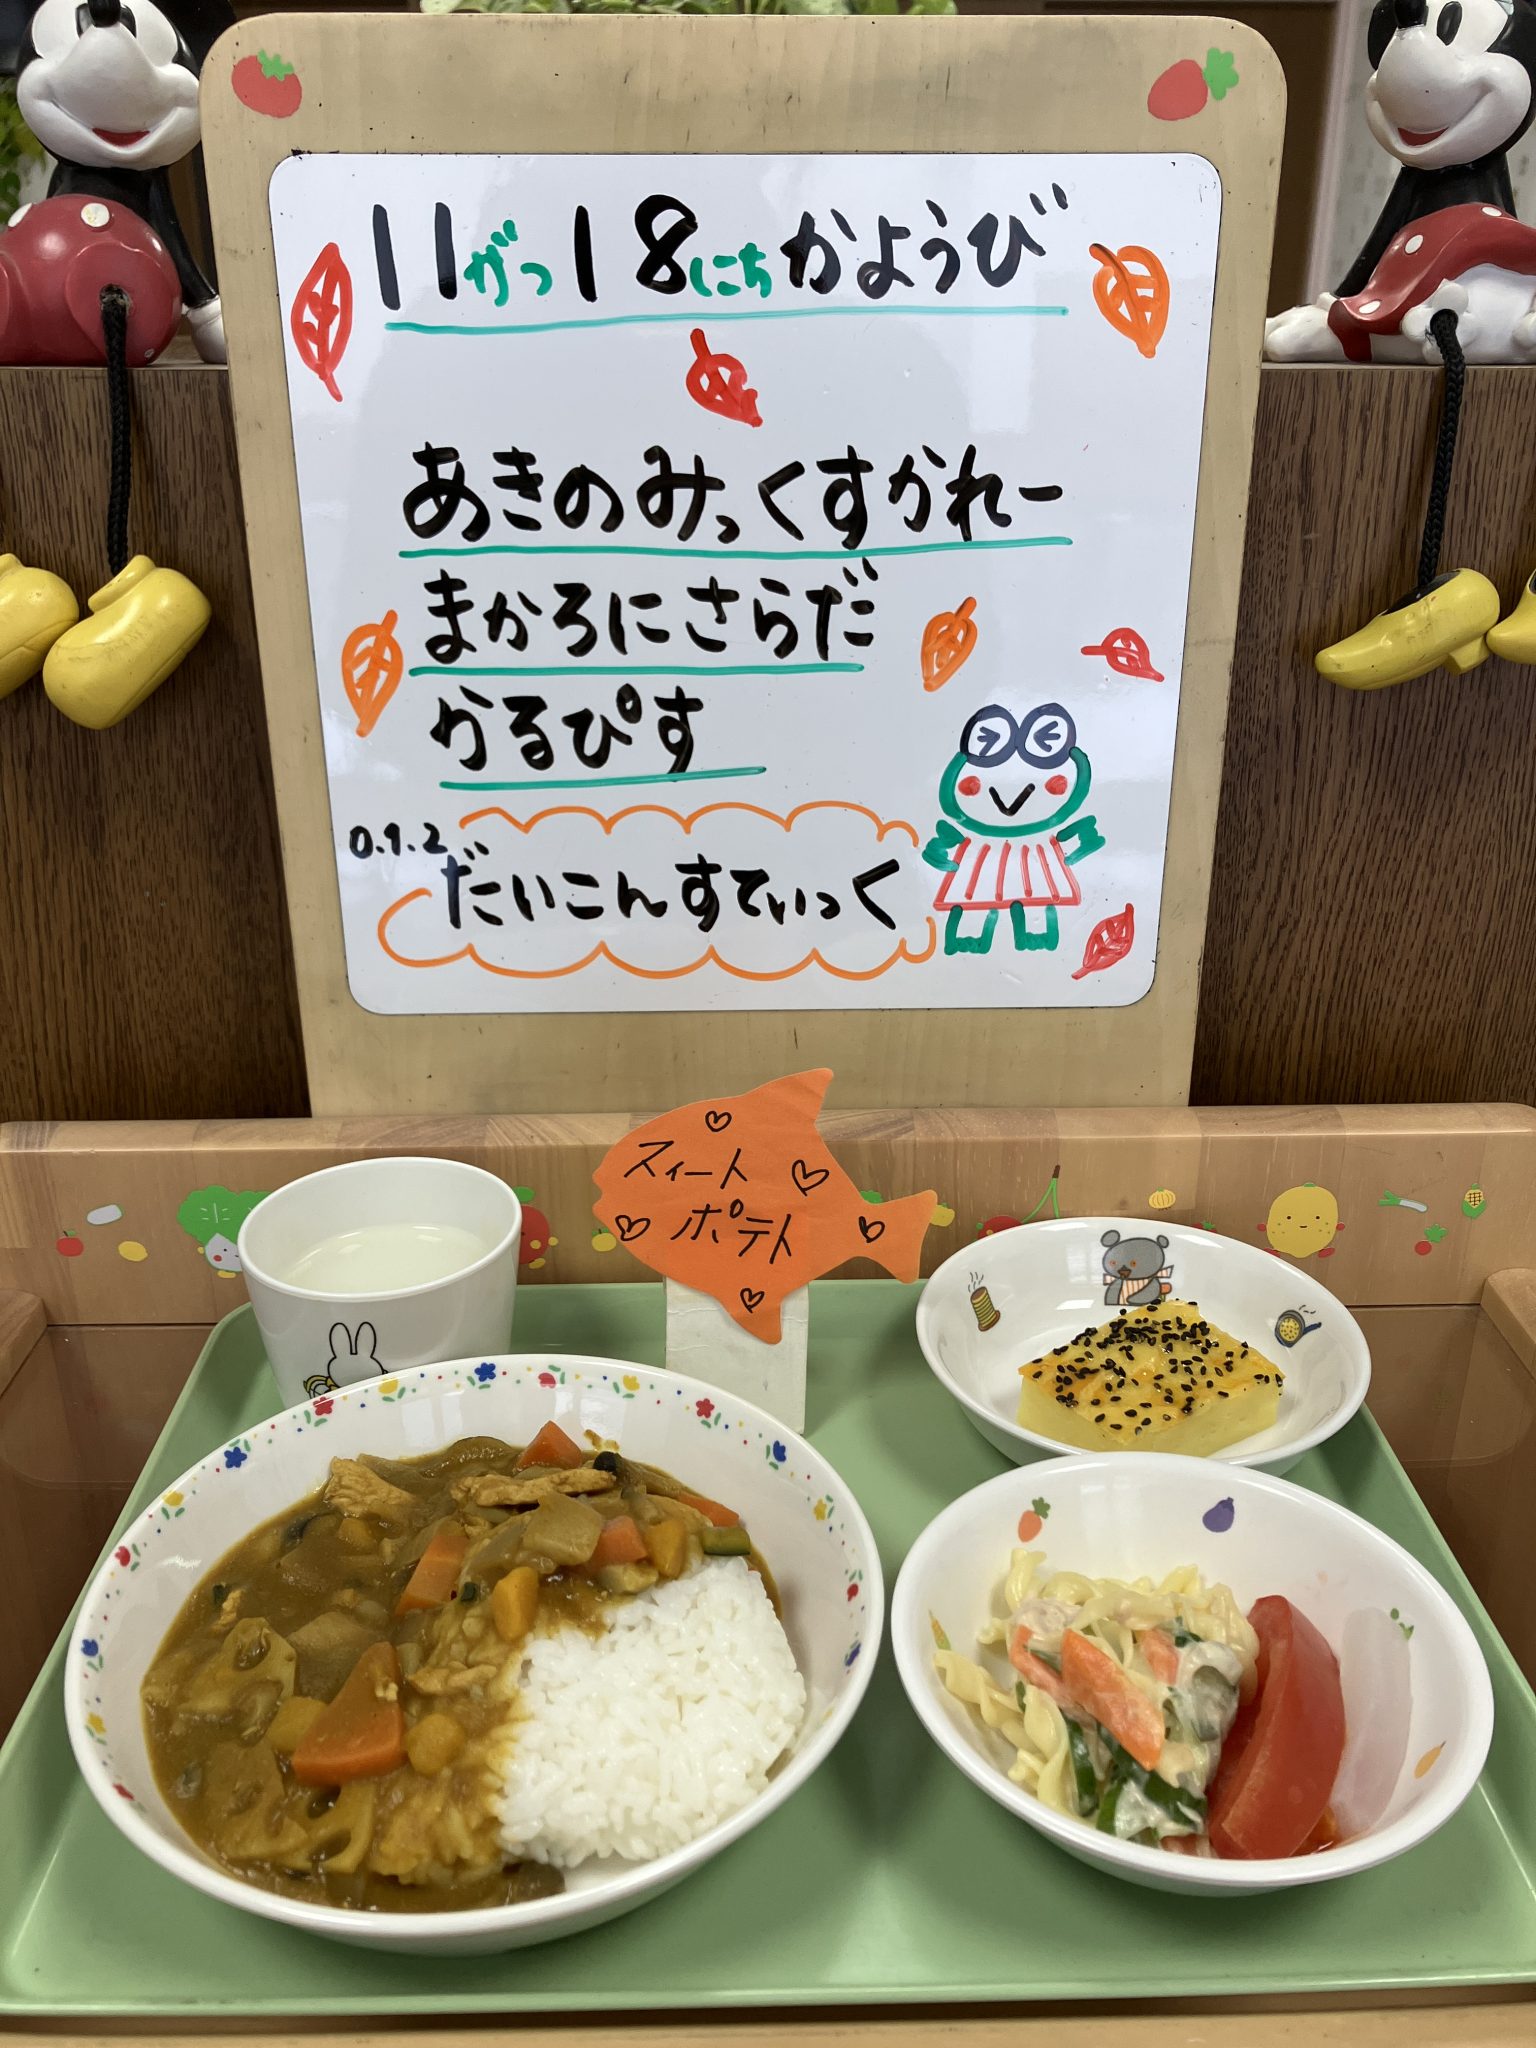 11がつ18にちかようび
あきのみっくすかれー
まかろにさらだ
かるぴす
0.1.2
だいこんすてぃっく
スィート
ポテト